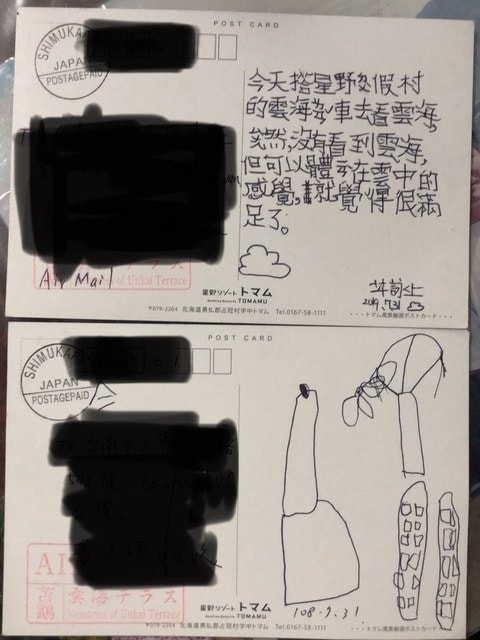 POST CARD
SHIMUKA
JAPAN
POSTAGEPAID
今天搭星野渡假村
的雲海纜車去看雲海,
雖然沒有看到雲海,
但可以體會在雲中的
感覺,就覺得很滿
足了。
テラス
of Unkai Terrace
Air Mail
2019.7.31
星野リゾート トマム
Hoshino Resorts TOMAMU
〒079-2204 北海道勇払郡占冠村字中トマム Tel.0167-58-1111
・・・トマム風景厳選ポストカード・・・
POST CARD
SHIMUKA
JAPAN
POSTAGEPAID
台南市
號 Taiwan
台灣.
收
AI
苫鵡
雲海テラス
Memories of Unkai Terrace
108.7.31
星野リゾート トマム
Hoshino Resorts TOMAMU
〒079-2204 北海道勇払郡占冠村字中トマム Tel.0167-58-1111
・・・トマム風景厳選ポストカード・・・